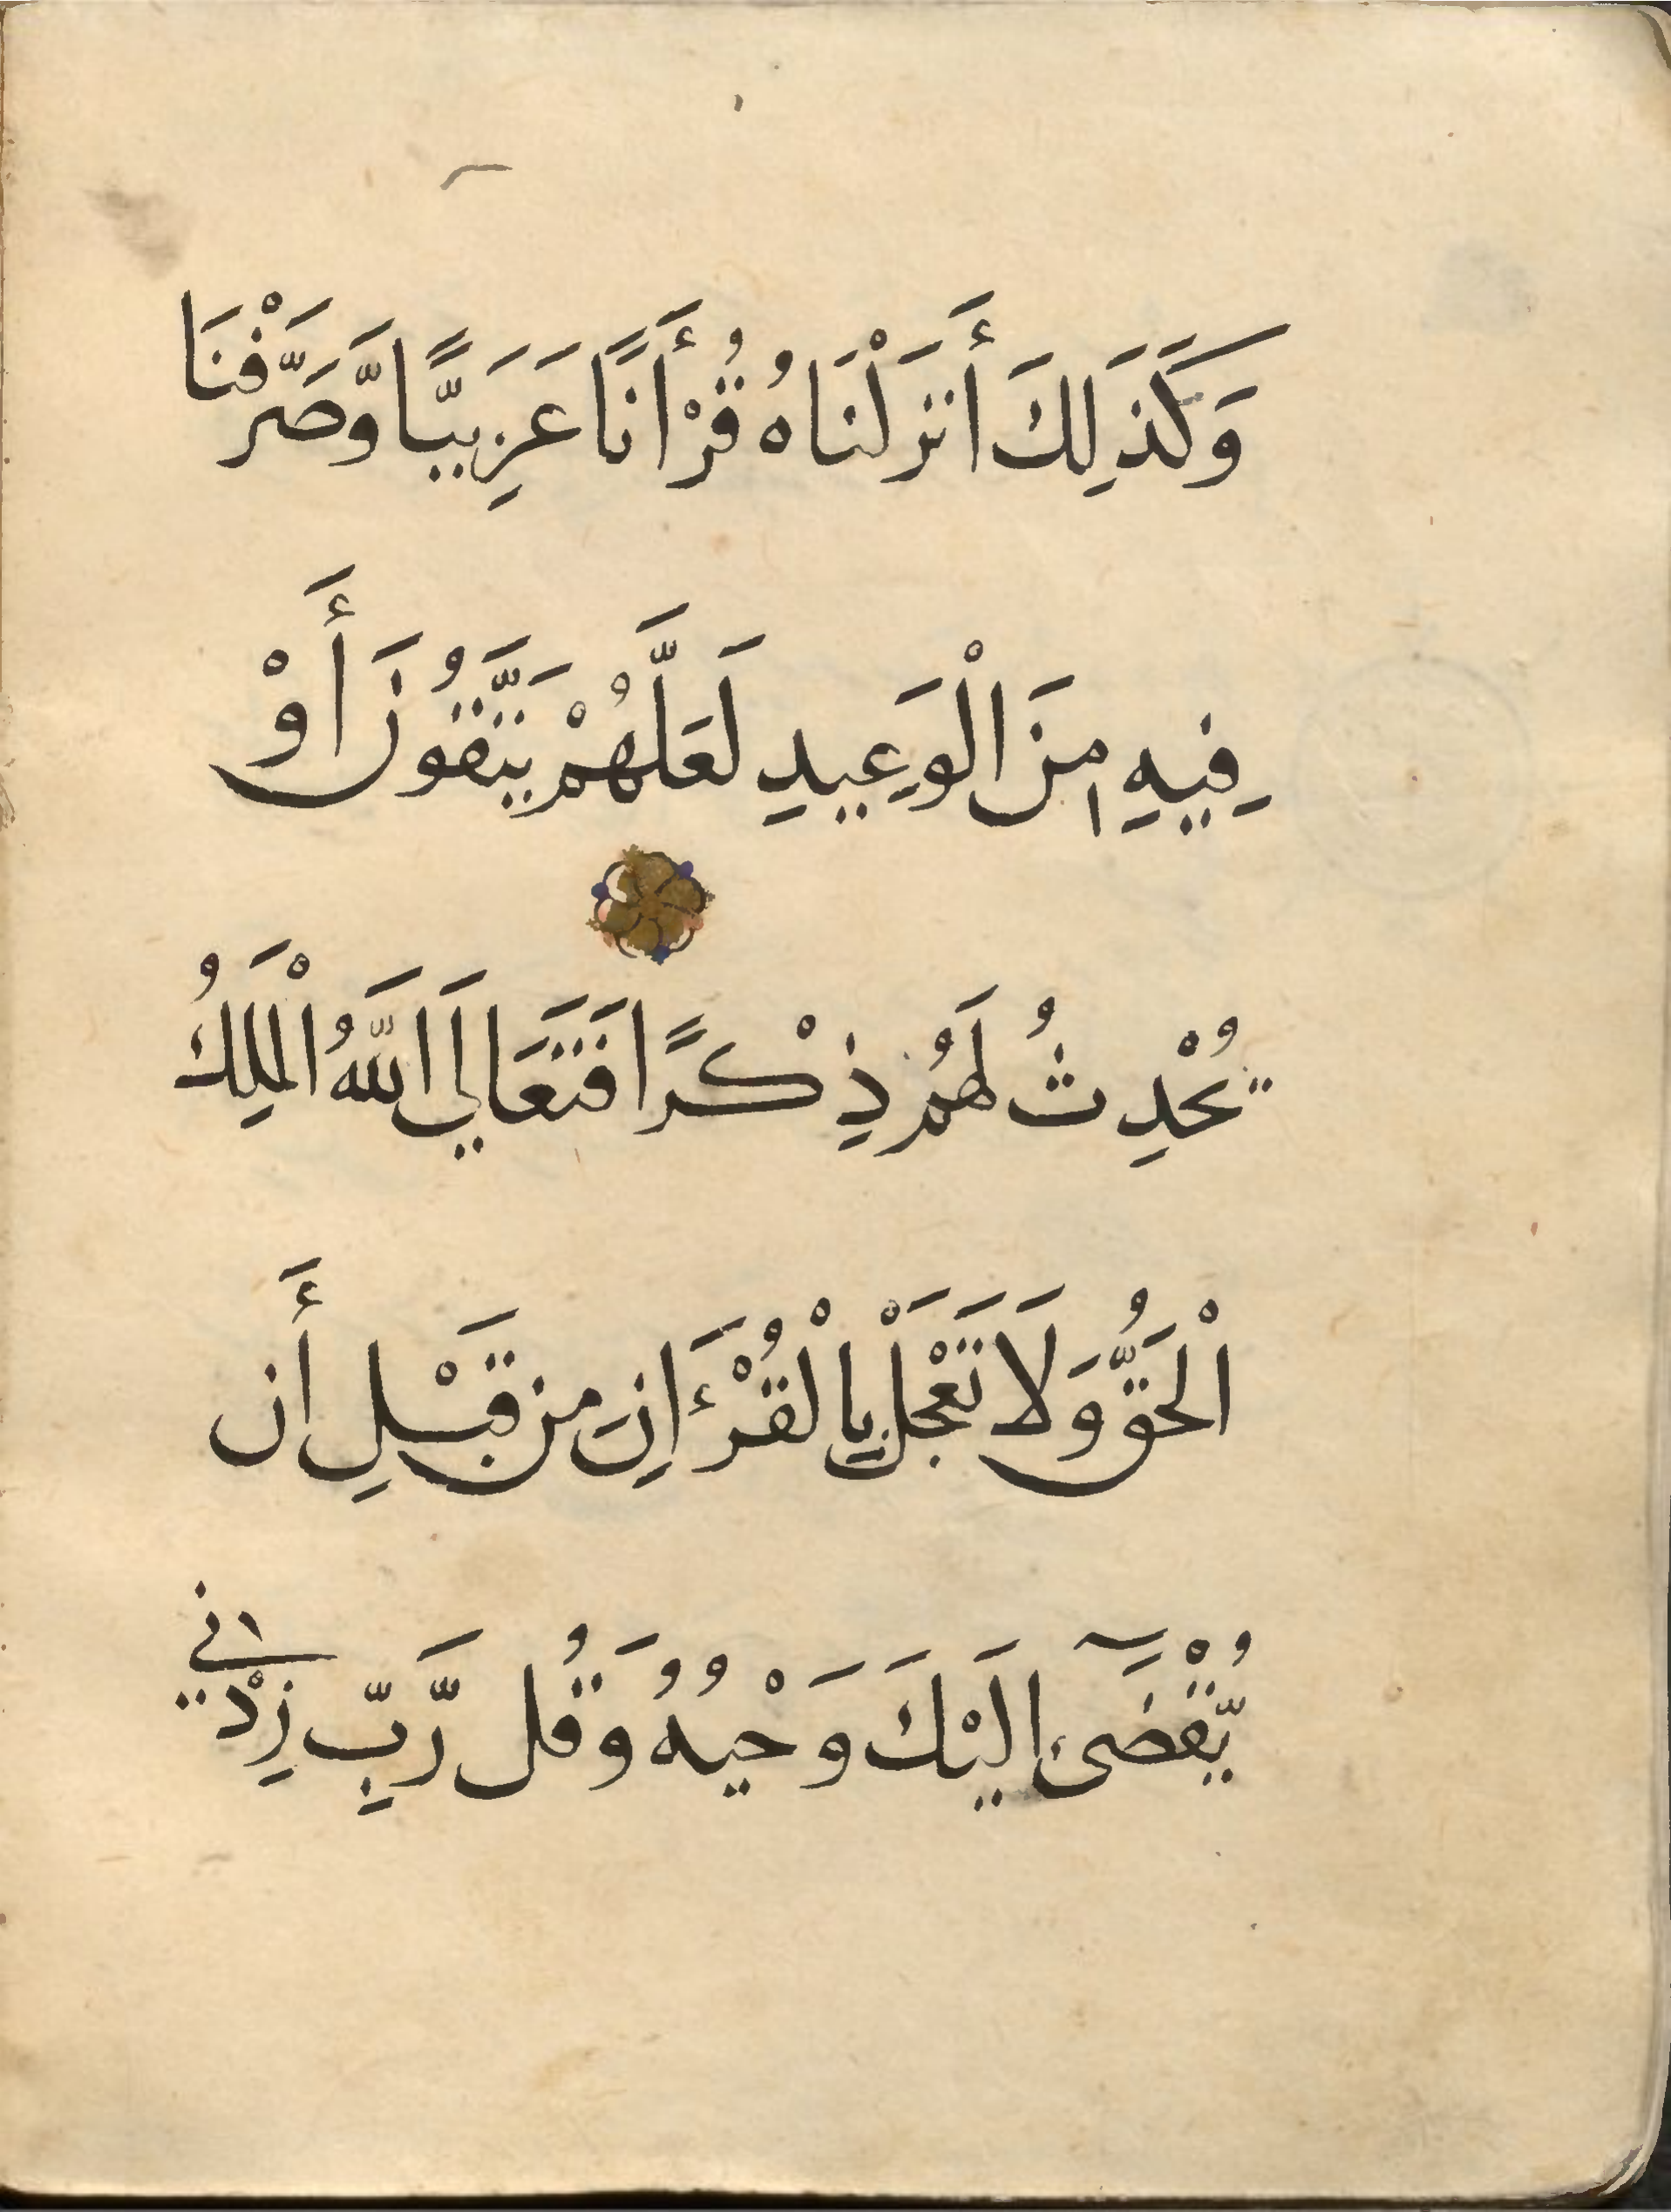 وَكَذَلِكَ أَنزَلْنَاهُ قُرْأَنًا عَرَبِيًّا وَّصَرَّفْنَا
فِيهِ مِنَ الْوَعِيدِ لَعَلَّهُمْ يَتَّقُونَ أَوْ
يُحْدِثُ لَهُمْ ذِكْرًا فَتَعَالَى اللَّهُ الْمَلِكُ
الْحَقُّ وَلَا تَعْجَلْ بِالْقُرْءَانِ مِن قَبْلِ أَن
يُّقْضَىٰٓ إِلَيْكَ وَحْيُهُ وَقُل رَّبِّ زِدْنِي